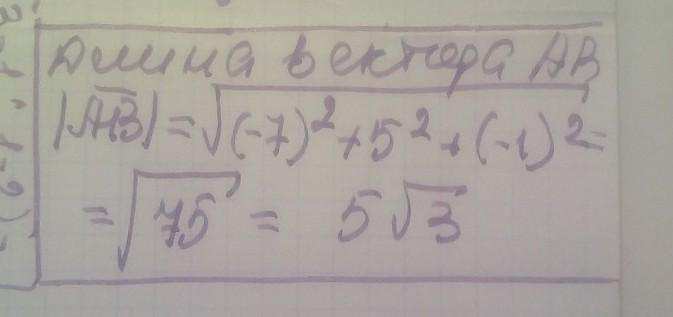 Длина вектора АВ
|AB| = √(-7)² + 5² + (-1)² =
= √75 = 5√3